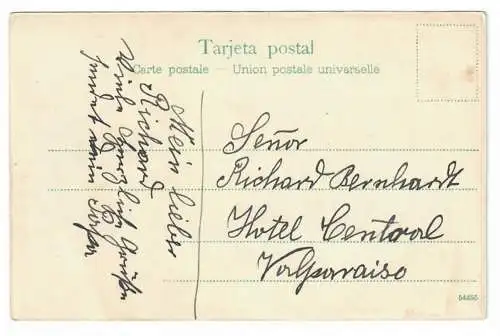 Tarjeta postal
Carte postale — Union postale universelle
Mein lieber
Richard
Viele
sendet
Señor
Richard Bernhardt
Hotel Central
Valparaiso
54456